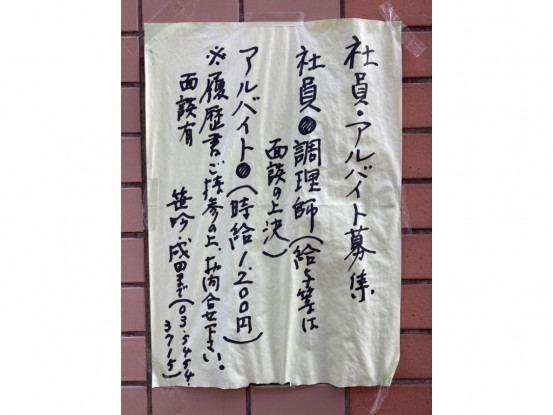 社員・アルバイト募集
社員●調理師(給与等は
面談の上決)
アルバイト●(時給1.200円)
※履歴書ご持参の上、お問合せ下さい。
面談有
笹吟・成田まで(03.5454.
3715)